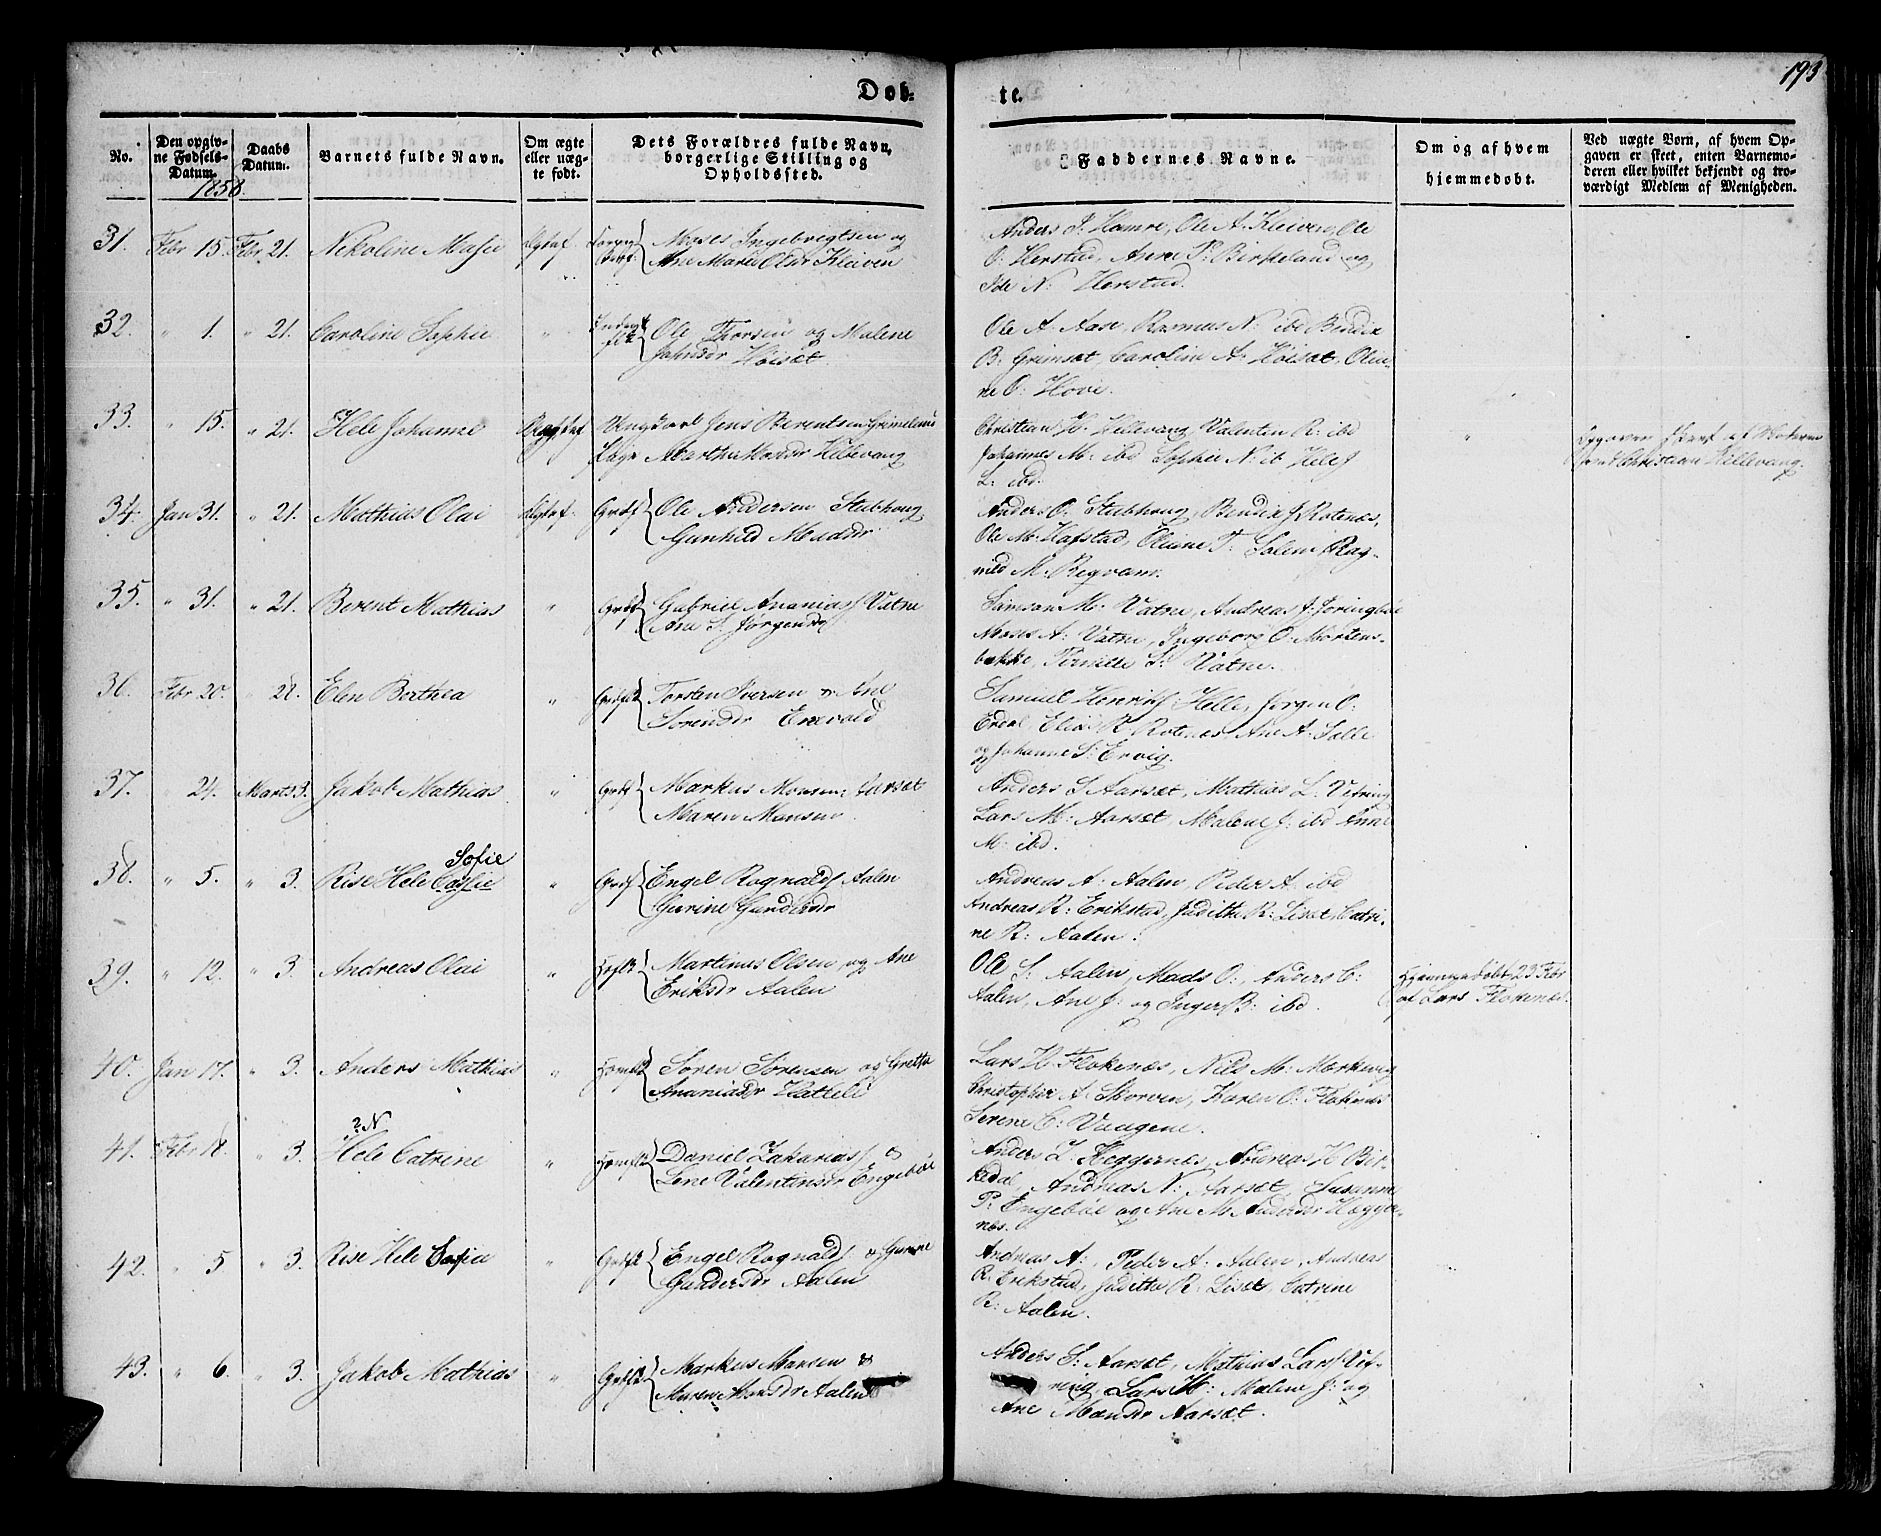 193
Døb-
te.
No.
Den opgiv-
ne Fødsels-
Datum.
Daabs
Datum.
Barnets fulde Navn.
Om ægte
eller uæg-
te født.
Dets Forældres fulde Navn,
borgerlige Stilling og
Opholdssted.
Faddernes Navne.
Om og af hvem
hjemmedøbt.
Ved uægte Børn, af hvem Op-
gaven er skeet, enten Barnemo-
deren eller hvilket bekjendt og tro-
værdigt Medlem af Menigheden.
1858
31. Febr 15. Febr 21. Nikoline Marie
Moses Ingebrigtsen og
Ane Marie Olsdr Kleiven
Anders J. Hamre, Ole A. Kleiven, Ole
O. Herstad, Anne P: Birkeland og
Ide N: Herstad.
32. " 1. " 21. Caroline Sophie "
Ole Thorsen og Malene
Høiset.
Ole A. Aase, Rasmus N: ibd Bendix
B. Grimset, Caroline A. Høiset, Olia-
ne O. Hove.
33. " 15. " 21. Hele Johanne
Ungkarl Jens Berentsen
Pige Martha Killevang
Christian H. Killevang, Valentin R: ibd
Johannes M: ibd Sophie N: ib Hele J
L. ibd.
"
Opgaven af Moderen
Christian Killevang.
34. Jan 31. " 21. Mathias Olai
Ole Andersen Stubhoug
Gunhild
Anders O. Stubhoug, Bendix J Rotenes,
Ole M: Hafstad, Oliane T: Solem Rag-
nild M.
35. " 31. " 21. Berent Mathias "
Gabriel Ananias Vatne
Ane S. Jørgensdr
Samson M: Vatne, Andreas J.
Moses A: Vatne, Ingeborg O. Mortens-
bakke, Pernille S: Vatne.
36. Febr 20. " 21. Elen Berthea "
Torsten Iversen & Ane
Sørensdr
Samuel Henriks Helle, Jørgen O:
Elias R Rotenes, Ane A. Solle
og Johanne S: Ervig.
37. " 24. Marts 3. Jakob Mathias "
Markus Monsen Aarset
Maren Monsen.
Anders S Aarset, Mathias L. Vefring
Lars M: Aarset Malene J: ibd Anne
M: ibd.
38. " 5. " 3. Rise Hele Sofie "
Engel Rognalds Aalen
Gurine
Andreas A. Aalen, Peder A. ibd
Andreas R: Erikstad, Judithe R. Liset, Catri-
ne R: Aalen.
39. " 12. " 3. Andreas Olai "
Martinus Olsen, og Ane
Eriksdr Aalen
Ole S: Aalen, Mads O:, Anders C:
Aalen, Ane J: og Inger B: ibd.
Hjemmedøbt 23 Febr
af Lars Flokenes.
40. Jan 17. " 3. Anders Mathias "
Søren Sørensen og Grethe
Ananiasdr
Lars H. Flokenæs, Nils M: Markevig
Christopher A. Skorven, Karen O: Flokenes
Serene C:
41. Febr " 3. ? N
Hele Catrine "
Daniel Zakarias &
Lene Valentinsdr Engebøe
Anders L Heggernes, Andreas H. Bir-
kedal, Andreas N: Aarset, Susanne
P: Engebøe og Ane M. Andersdr Hegger-
nes.
42. " 5 " 3. Rise Hele Sofie "
Engel Rognalds & Gurine
Gundersdr Aalen
Andreas A:, Peder A: Aalen, Andreas
R. Erikstad, Judithe R: Liset, Catrine
R: Aalen.
43. " 6. " 3. Jakob Mathias "
Markus Monsen &
Maren Monsdr Aalen
Anders S: Aarset, Mathias Lars Vef-
ring, Lars M: Malene J: og
Ane Monsdr Aarset.